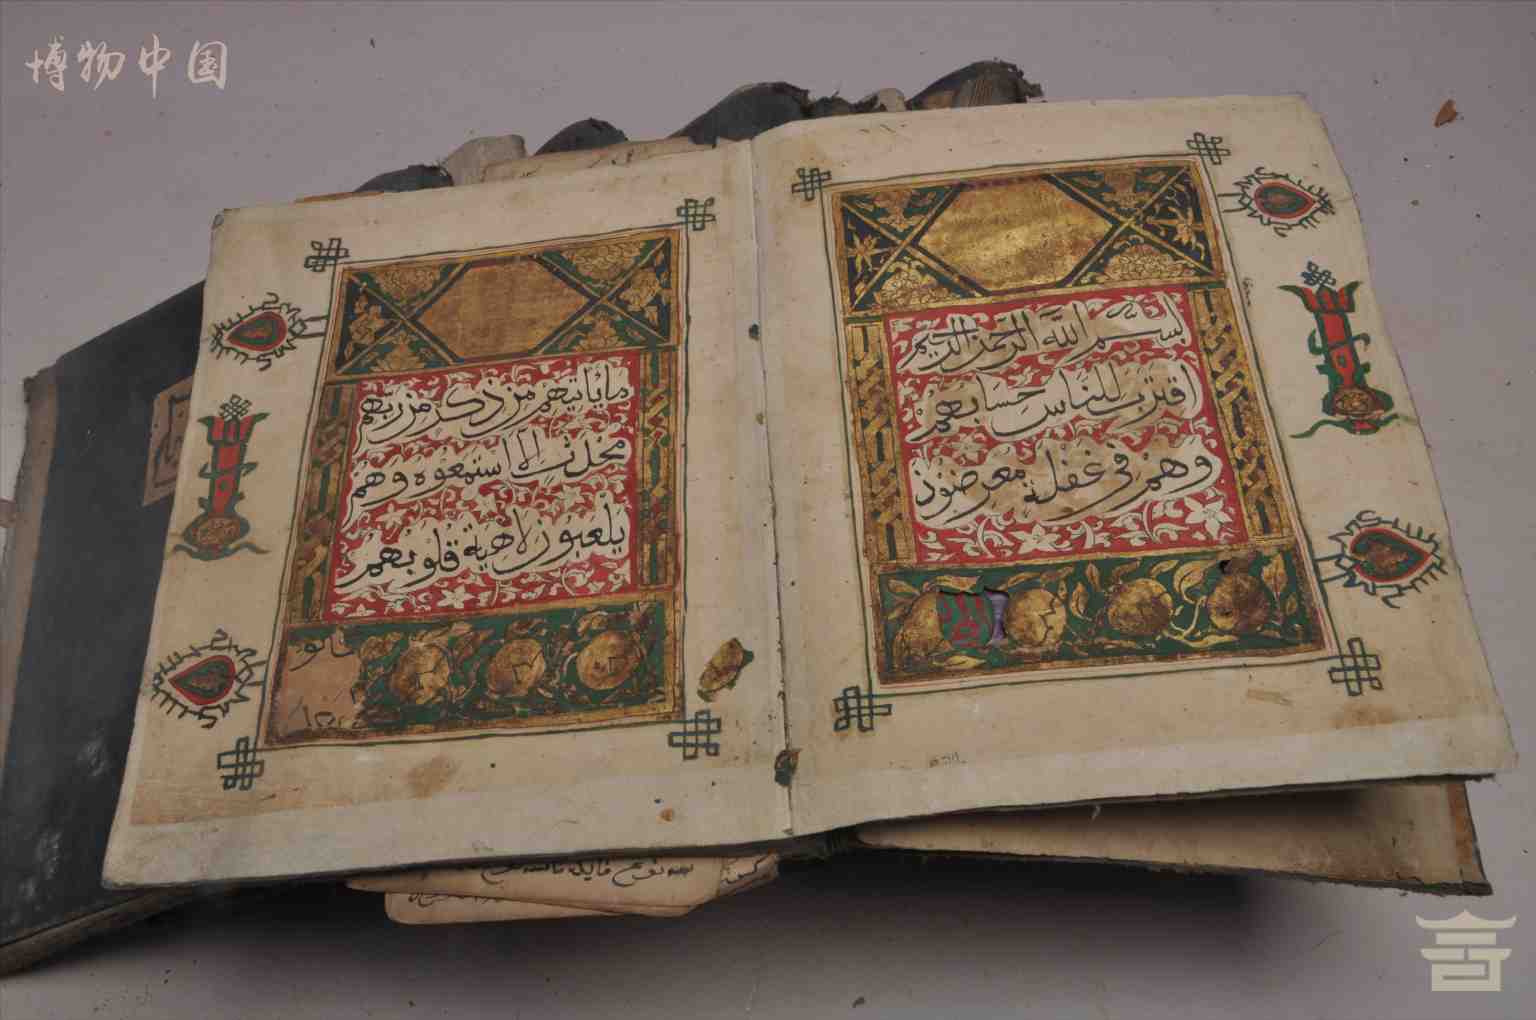 博物中国
بسم الله الرحمن الرحيم
اقترب للناس حسابهم
وهم في غفلة معرضون
ما ياتيهم من ذكر من ربهم
محدث الا استمعوه وهم
يلعبون لاهية قلوبهم